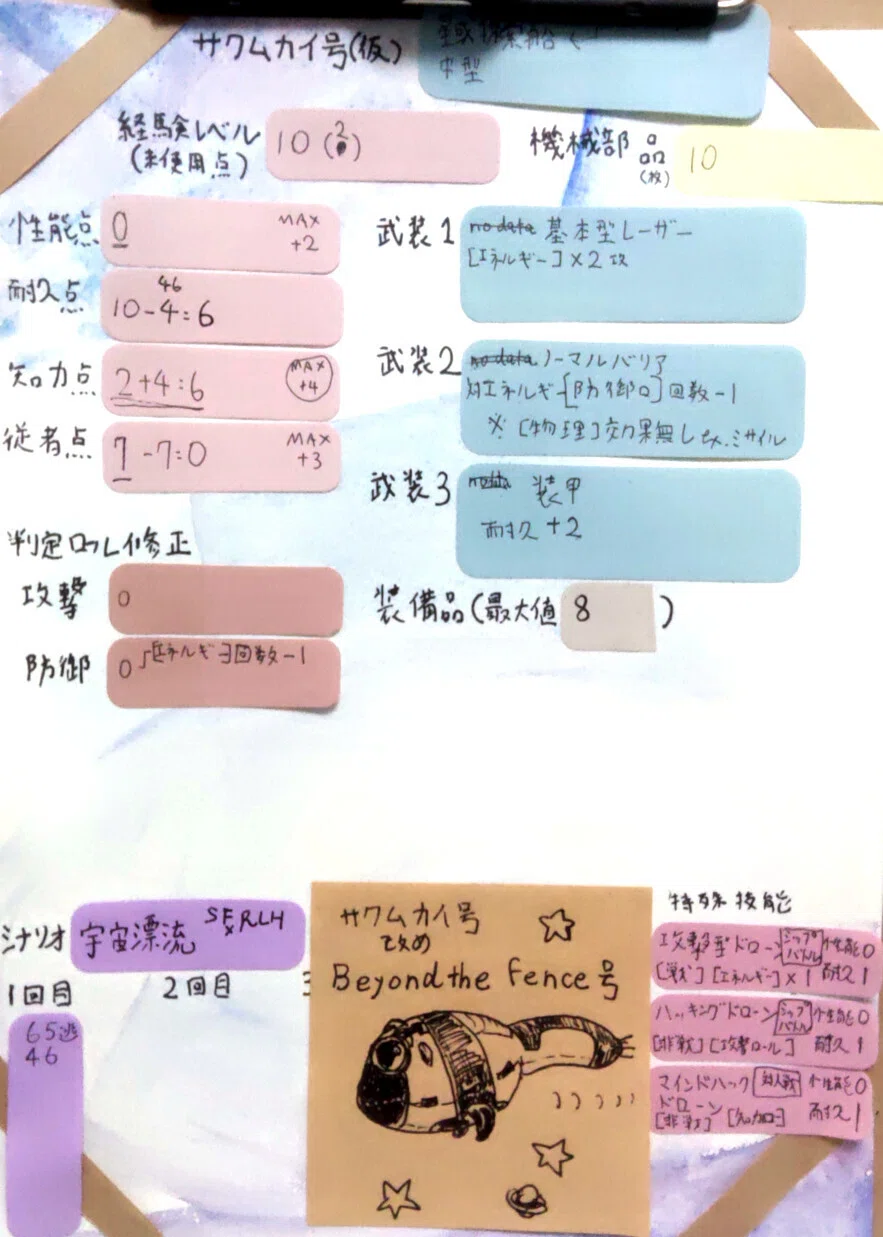 サクムカイ号(仮)
中型
経験レベル
(未使用点)
10 (2)
機械部品
(枚)
10
性能点
0
MAX
+2
耐久点
46
10-4:6
知力点
2+4:6
MAX
+4
従者点
7-7:0
MAX
+3
判定ロール修正
攻撃
0
防御
0 [エネルギー]回数-1
武装1
no data 基本型レーザー
[エネルギー]×2攻
武装2
no data ノーマルバリア
対エネルギー[防御ロ]回数-1
※[物理]効果無し ミサイル
武装3
装甲
耐久+2
装備品(最大値 8 )
シナリオ
宇宙漂流
1回目
65逃
46
2回目
サクムカイ号
改め
Beyond the Fence号
特殊技能
攻撃型ドローン シップバトル 性能0
[戦][エネルギー]×1 耐久1
ハッキングドローン シップバトル 性能0
[非戦][攻撃ロール] 耐久1
マインドハック 対人戦 性能0
ドローン
[非戦] [知力ロ] 耐久1